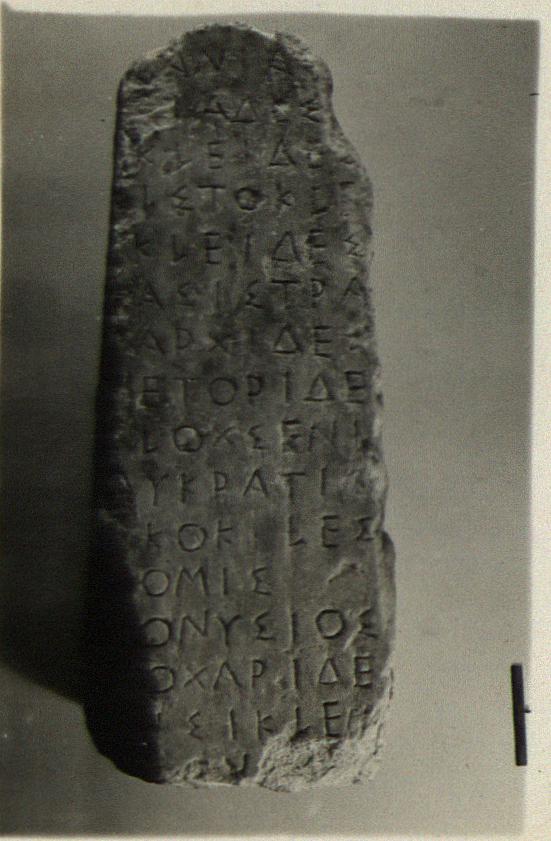 ΑΔΕΣ
ΚLΕΙΔ
ΙΣΤΟΚL
ΚLΕΙΔΕΣ
ΑΣΙΣΤΡΑ
ΑΡΧΙΔΕΣ
ΕΤΟΡΙΔΕ
LΟΧΣΕΝΙ
ΥΚΡΑΤΙ
ΚΟΚLΕΣ
ΟΜΙΣ
ΟΝΥΣΙΟΣ
ΟΧΑΡΙΔΕ
ΣΙΚLΕ